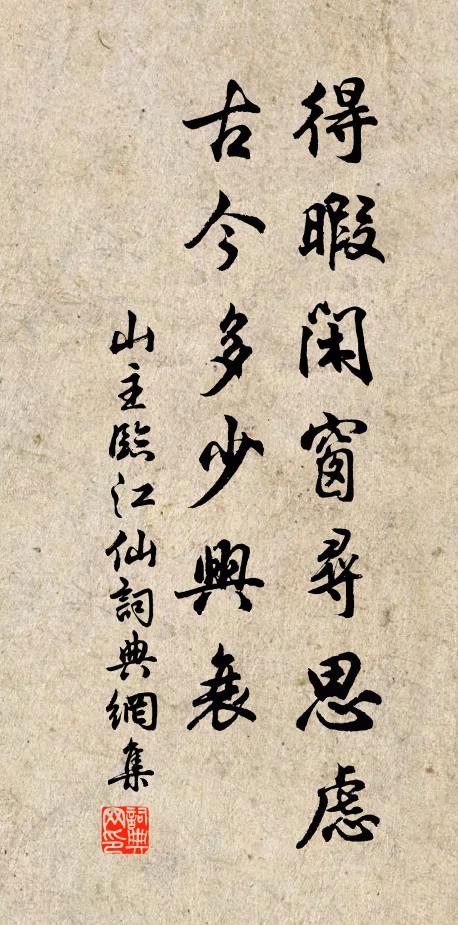 得暇閑窗尋思慮
古今多少興衰
山主臨江仙詞典網集
詞典网印